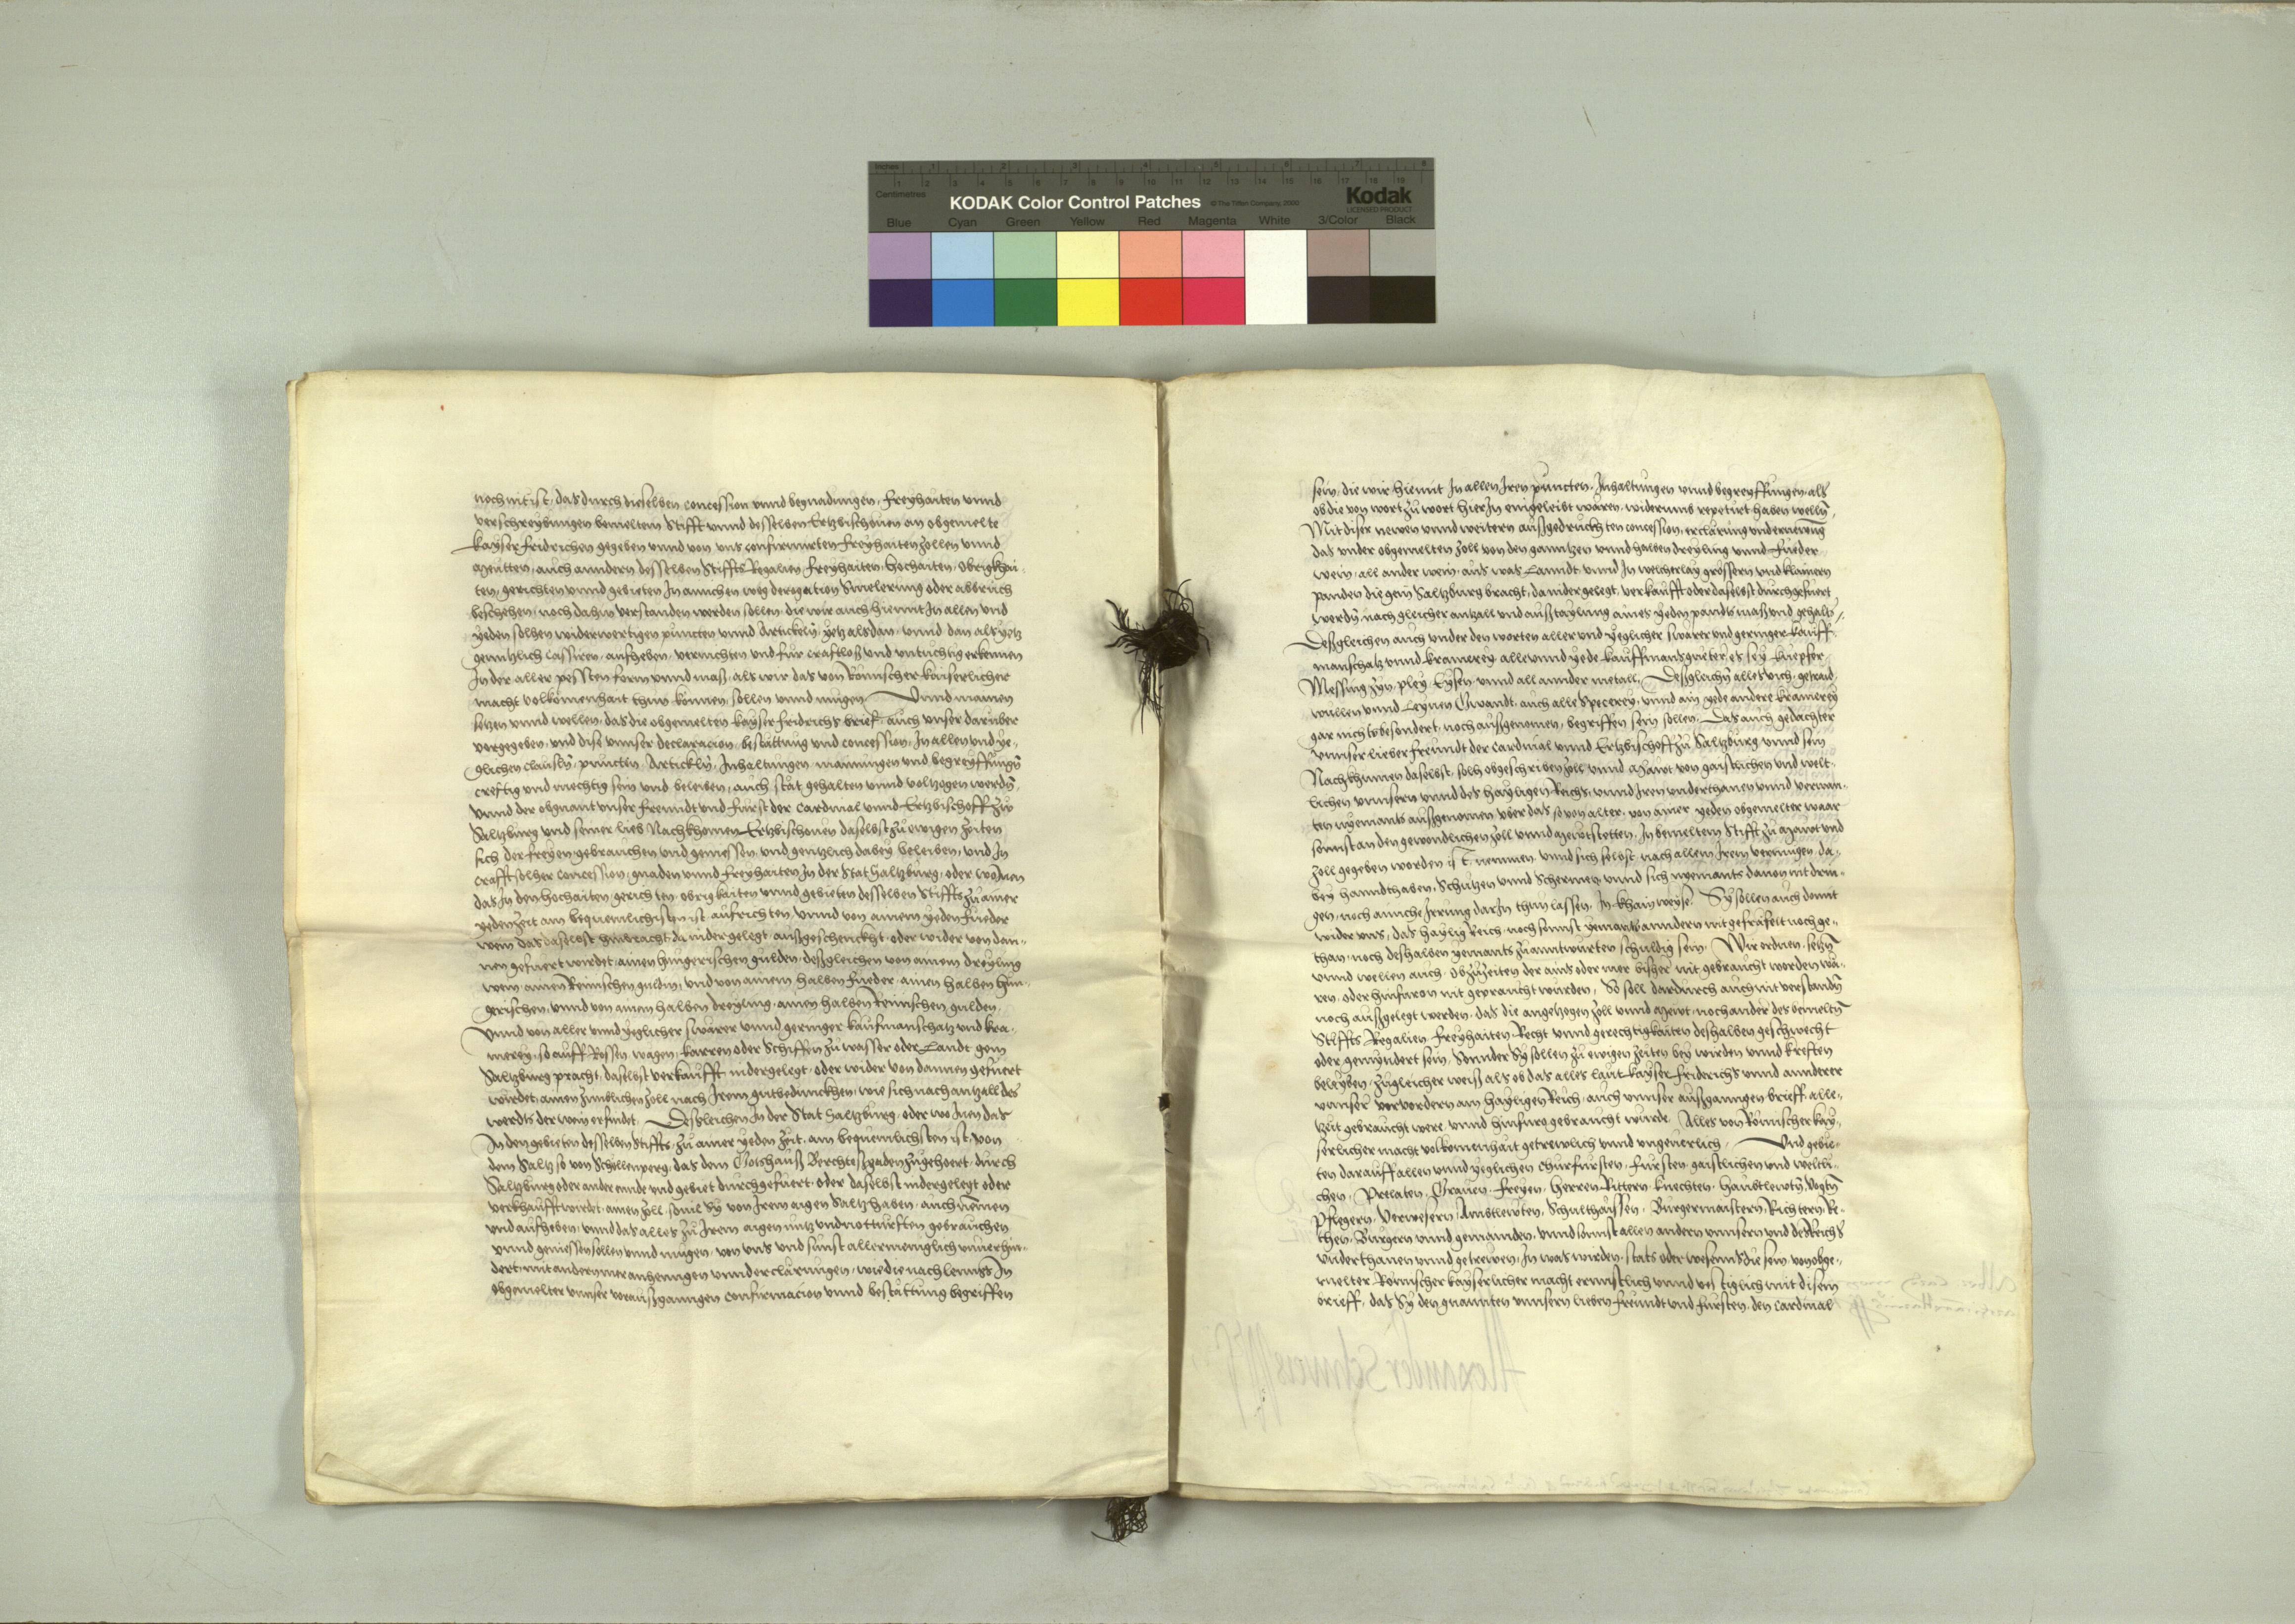 Inches 1 2 3 4 5 6 7 8
Centimetres 1 2 3 4 5 6 7 8 9 10 11 12 13 14 15 16 17 18 19
KODAK Color Control Patches © The Tiffen Company, 2000 Kodak
LICENSED PRODUCT
Blue Cyan Green Yellow Red Magenta White 3/Color Black
noch nit ist, das durch dieselben concession vnnd begnadungen, freyhaiten vnnd
verschreybungen bemeltem Stifft vnnd desselben Ertzbischouen an obgemelte
Kayser Fridrichen gegeben vnnd von vns confirmirten freyhaiten zollen vnnd
Meutten, auch anndern desselben Stiffts Regalien, freyhaiten, Hochaiten, Obrigkhai-
ten, gerichten vnnd gebieten In ainichen weg derogation Smelerung oder abbruch
beschehen, noch dahin verstanden werden sollen, die wir auch hiemit In allen vnd
yeden solhen widerwertigen puncten vnnd Artickeln, yetz alsdan, vnnd dan als yetz
genntzlich cassiren, aufheben, vernichten vnd fur crafftloß vnd vntuchtig erkennen
In der aller pessten form vnnd maß, als wir das von Römischer kaiserlicher
macht volkomenhait thun konnen, sollen vnnd mugen Vnnd mainen
setzen vnnd wellen, das die obgemelten Kayser Fridrichs brief, auch vnser daruber
vorgegeben, vnd dise vnnser declaracion, bestättung vnd concession, In allen vnd ye-
glichen clauseln, puncten, Artickeln, Inhaltungen, mainungen vnd begreyffungen
creftig vnd mechtig sein vnd beleiben, auch stät gehalten vnnd volzogen werden,
vnnd der obgnant vnser freundt vnd furst der Cardinal vnnd Ertzbischoff zu
Saltzburg vnd seiner lieb Nachkhomen Ertzbischouen daselbst zu ewigen zeiten
sich der freyen gebrauchen vnd geniessen, vnd gentzlich dabey beleiben, vnd In
crafft solher concession, gnaden vnnd freyhaiten In der Stat Saltzburg, oder wo Inen
das In den Hochaiten, gerichten, obrigkaiten vnnd gebieten desselben Stiffts zu ainer
yeden zeit am bequemlichisten ist, aufrichten, vnnd von ainem yeden fueder
wein das daselbst hinbracht, da nidergelegt, außgeschenckht, oder wider von dan-
nen gefuert wirdet, ainen hungerischen gulden, deßgleichen von ainem dreyling
wein, ainen Reinischen guldin, vnd von ainem halben fueder, ainen halben Hun-
gerischen, vnnd von ainem halben dreyling, ainen halben Reinischen gulden,
Vnnd von aller vnnd yeglicher swärer vnnd geringer kaufmanschatz vnd kra-
merey, so auff Rossen, wagen, karren oder Schiffen zu wasser oder Landt gein
Saltzburg pracht, daselbst verkaufft nidergelegt, oder wider von dannen gefuert
wirdet, ainen zimblichen zoll nach Irem gutbedunckhen, wie sich nach antzall des
werdts der wein erfindet, Desgleichen In der Stat Saltzburg, oder wo Inen das
In den gebieten desselben Stiffts, zu ainer yeden Zeit, am bequemlichsten ist, von
dem Saltz so von Schellenperg, das dem Gotshauß Berchtoßgaden zugehoert, durch
Saltzburg oder ander ennde vnd gebiet durchgefuert, oder daselbst nidergelegt oder
verkhaufft wirdet, ainen zoll, souil Sy von Irem aigen Saltz haben, auch nemen
vnd aufheben, vnnd das alles zu Irem aigen nutz vnd notturfften gebrauchen
vnnd geniessen sollen vnnd mugen, von vns vnd sunst allermeniglich vnuerhin-
dert, mit andern mer anhenngen vnnd erclärungen, wie die nach lenngs In
obgemelter vnnser vorausgangen confirmacion vnnd bestättung begriffen
sein, die wir hiemit In allen Iren puncten, Inhaltungen vnnd begreyffungen, als
ob die von wort zu wort hierIn eingeleibt wären, widerumb repetirt haben wellen,
Mit diser newen vnnd weitern außgedruckhten concession, erclärung vnd ernewung
das vnder obgemelten zoll von den ganntzen vnnd halben dreyling vnnd fueder
wein, all ander wein, aus was Lanndt, vnnd In welcherlay grössern vnd klainern
panden die gein Saltzburg bracht, da nider gelegt, verkaufft oder daselbst durchgefuert
werden, nach gleicher antzall vnd außtaylung aines yeden pandts maß vnd gehalt,
Desgleichen auch vnder den worten aller vnd yeglicher swärer vnd geringer kauff-
manschatz vnnd kramerey, alle vnnd yede kauffmansgueter, es sey kupfer,
Messing, zyn, pley, Eysen, vnnd all annder metall, Desgleichen alles vich, getraid,
wullen vnnd Leynen Gwandt, auch alle Specerey, vnnd ain yede andere kramerey
gar nichts besondert, noch außgenomen, begriffen sein sollen, Das auch gedachter
vnnser lieber freundt der Cardinal vnnd Ertzbischoff zu Saltzburg vnnd sein
Nachkhumen daselbst, solh obgeschriben zoll vnnd Mawt von gaistlichen vnd welt-
lichen vnnsern vnnd des hayligen Reichs, vnnd Iren vnderthanen vnnd verwan-
ten nyemants außgenomen, vber das so von alter, von ainer yeden obgemelter waar
sonnst an den gewondlichen zoll vnnd Mewtstetten, In bemeltem Stifft zu Mawt vnd
zoll gegeben worden ist, nemmen, vnnd sich selbst nach allem Irem vermugen, da-
bey hanndthaben, Schutzen vnnd Schermen, vnnd sich nyemants dauon nit drin-
gen, noch ainiche Irrung darIn thun lassen, In khain weyse, Sy sollen auch damit
wider vns, das haylig Reich, noch sonnst yemants anndern nit gefräfelt noch ge-
than, noch deshalben yemants zu anntwurten schuldig sein, Wir ordnen, setzen
vnnd wellen auch, Ob zuzeiten der ains oder mer bisher nit gebraucht worden wä-
ren, oder hinfuron nit gepraucht wurden, So soll dardurch auch nit verstanden
noch außgelegt werden, das die angetzogen zoll vnnd Mawt, noch ander des bemelten
Stiffts Regalien, freyhaiten, Recht vnnd gerechtigkaiten deshalben geschwecht
oder gemyndert sein, Sonnder Sy sollen zu ewigen zeiten bey wirden vnnd kreften
beleyben, zugleicher weiß als ob das alles laut Kayser Friderichs vnnd annderer
vnnser vorvordern am hayligen Reich, auch vnnser außganngen brieff, alle-
tzeit gebraucht were, vnnd hinfuro gebraucht wurde, Alles von Römischer kay-
serlicher macht volkomenhait getrewlich vnnd vngeuerlich, Vnd gebie-
ten darauff allen vnnd yeglichen Churfursten, Fursten, gaistlichen vnd weltli-
chen, Prelaten, Grauen, Freyen, Herren, Rittern, knechten, Haubtlewten, Vogten
Pflegern, Verwesern, Ambtlewten, Schulthaissen, Burgermaistern, Richtern, Re-
then, Burgern vnnd gemainden, vnnd sonnst allen andern vnnsern vnd des Reichs
vnderthanen vnnd getrewen, In was wirden, stats oder wesenns die sein, von obge-
melter Römischer kayserlicher macht ernnstlich vnnd vestiglich mit disem
brieff, das Sy den gnannten vnnsern lieben freundt vnd fursten, den Cardinal